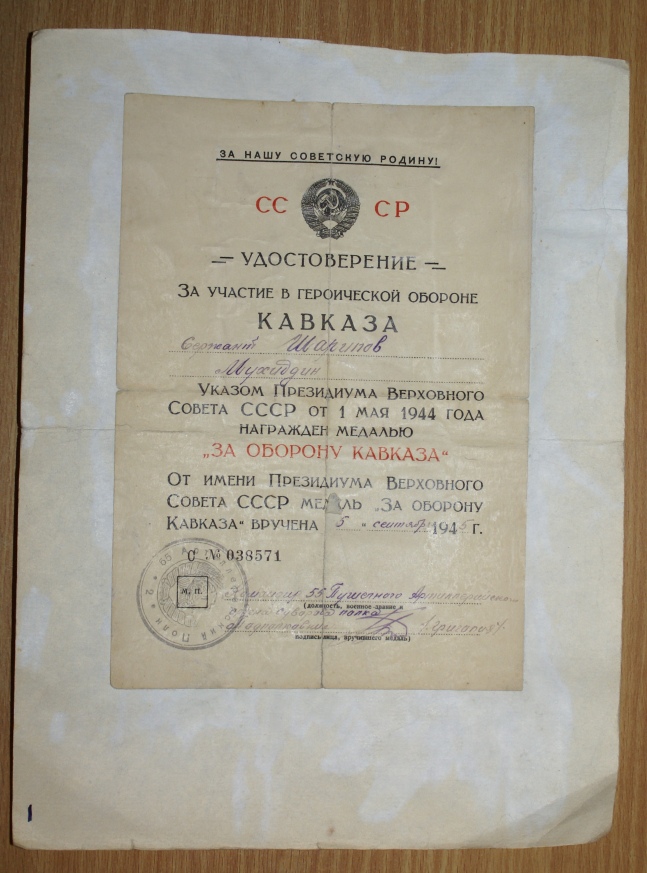 ЗА НАШУ СОВЕТСКУЮ РОДИНУ!
СС СР
УДОСТОВЕРЕНИЕ
ЗА УЧАСТИЕ В ГЕРОИЧЕСКОЙ ОБОРОНЕ
КАВКАЗА
Сержант Шарипов
Мухитдин
УКАЗОМ ПРЕЗИДИУМА ВЕРХОВНОГО
СОВЕТА СССР ОТ 1 МАЯ 1944 ГОДА
НАГРАЖДЕН МЕДАЛЬЮ
„ЗА ОБОРОНУ КАВКАЗА“
ОТ ИМЕНИ ПРЕЗИДИУМА ВЕРХОВНОГО
СОВЕТА СССР МЕДАЛЬ „ЗА ОБОРОНУ
КАВКАЗА“ ВРУЧЕНА 5 „ сентября 1945 Г.
С № 038571
М. П.
Командир 55 Пушечного Артиллерийского
(должность, военное звание и
полка
подполковник Григоров
подпись лица, вручившего медаль)
1